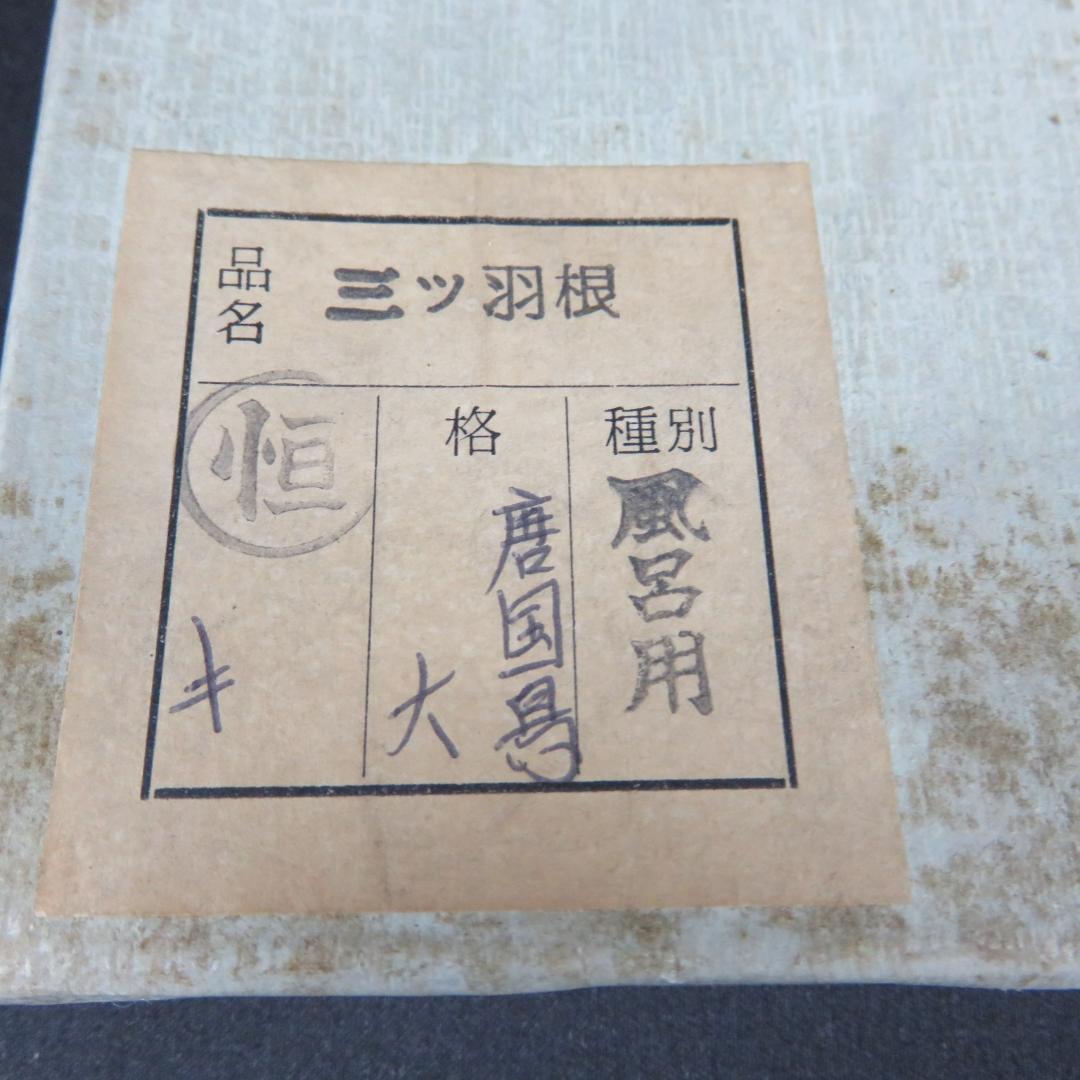 品名
三ツ羽根
種別
風呂用
格
唐国鳥
大
恒
キ